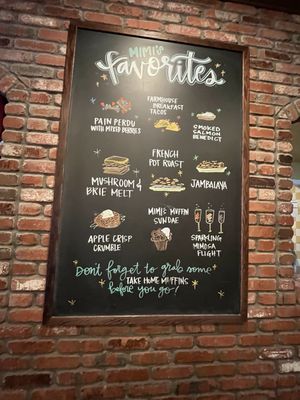 MIMI'S
favorites
PAIN PERDU
WITH MIXED BERRIES
FARMHOUSE
BREAKFAST
TACOS
SMOKED
SALMON
BENEDICT
MUSHROOM &
BRIE MELT
FRENCH
POT ROAST
JAMBALAYA
APPLE CRISP
CRUMBLE
MIMI'S MUFFIN
SUNDAE
SPARKLING
MIMOSA
FLIGHT
Don't forget to grab some
TAKE HOME MUFFINS
before you go!